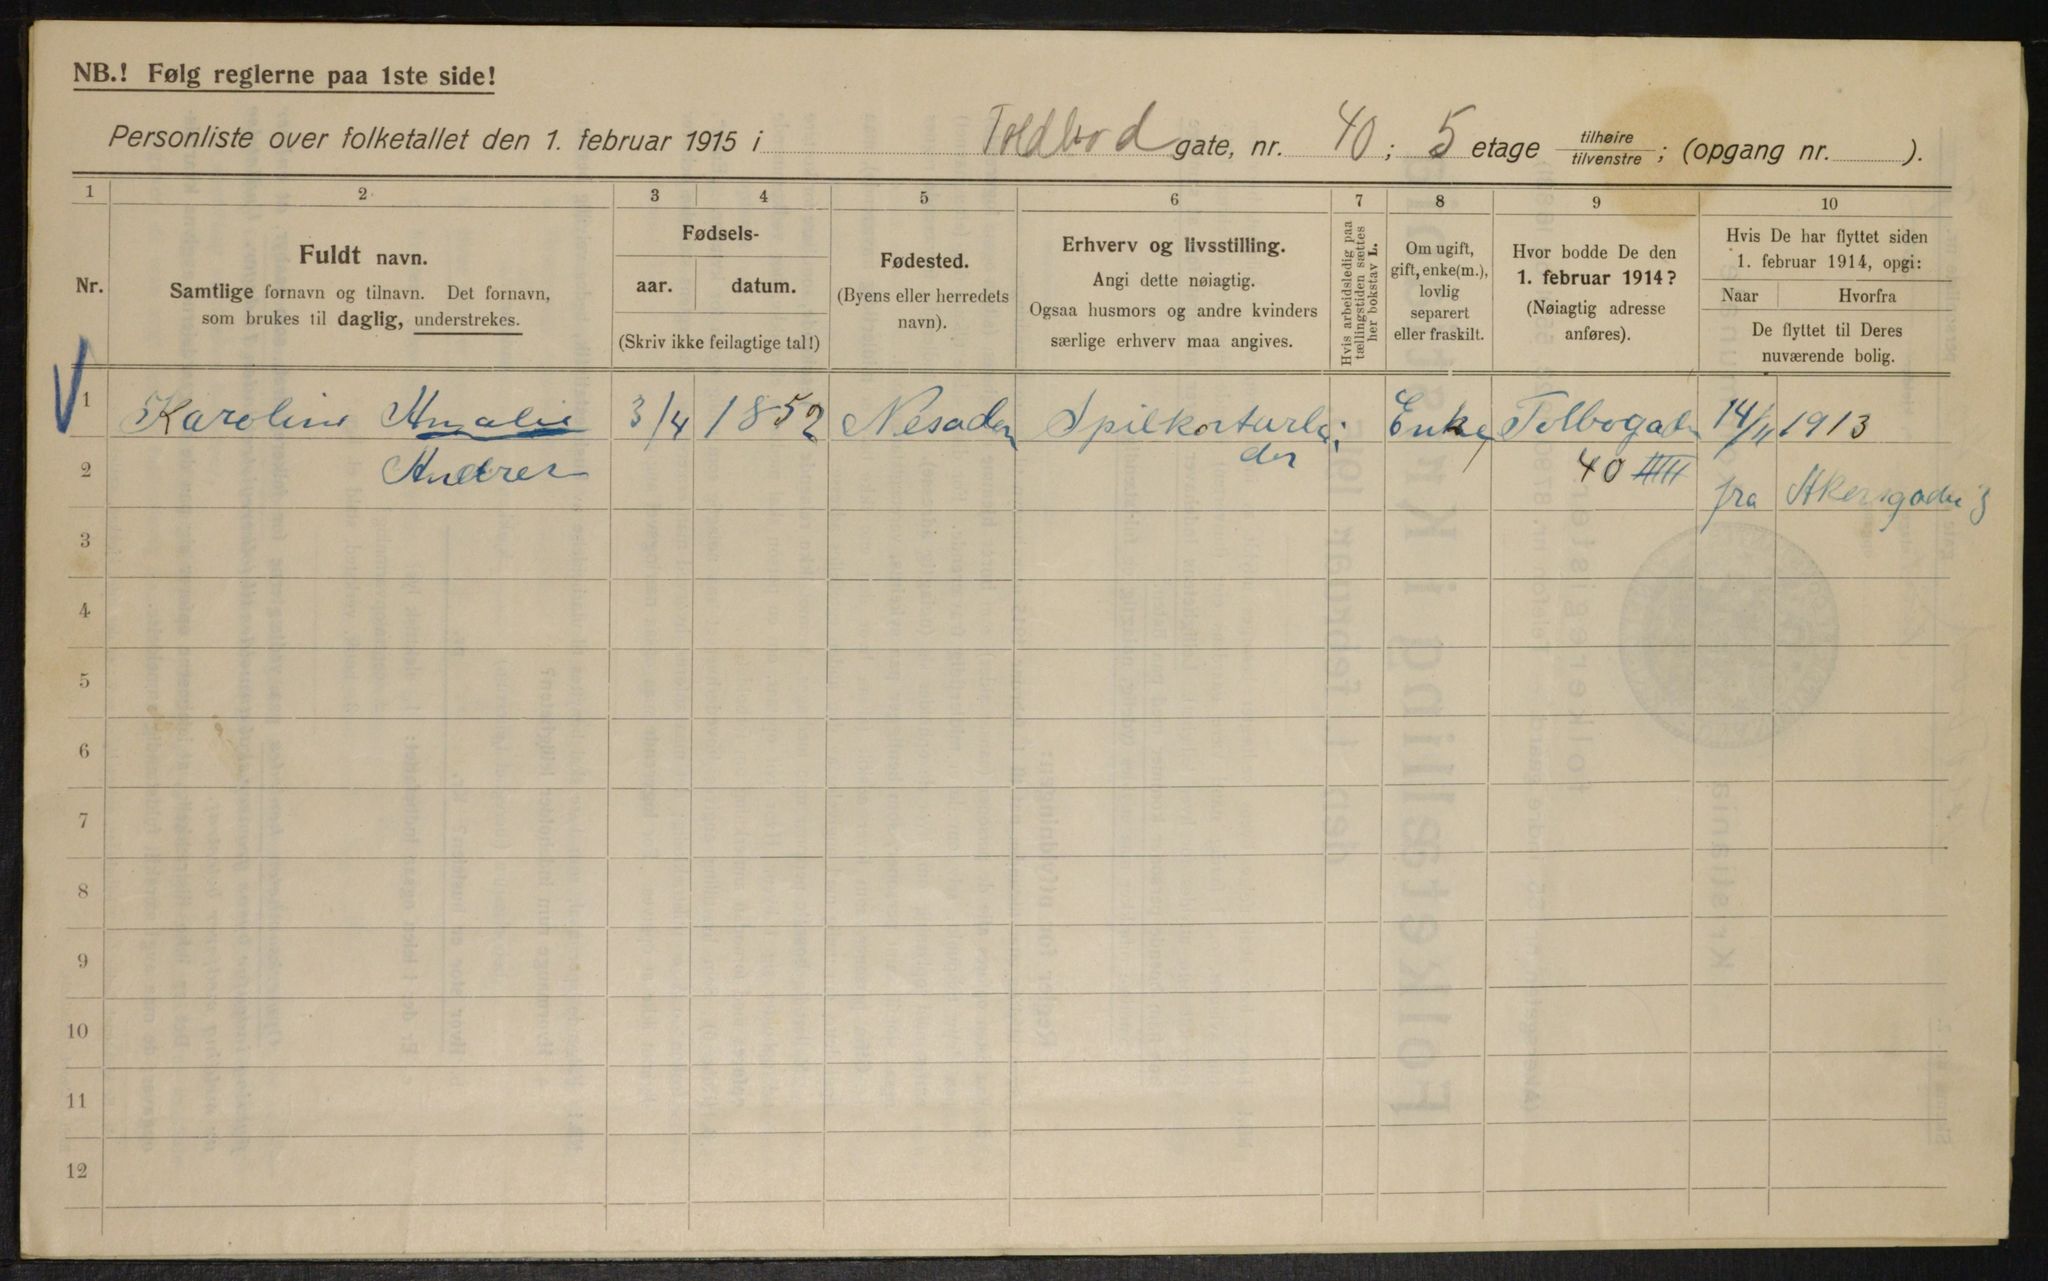 NB.! Følg reglerne paa 1ste side!
Personliste over folketallet den 1. februar 1915 i Toldbod gate, nr. 40; 5 etage tilhøire/tilvenstre; (opgang nr. ).
1 2 3 4 5 6 7 8 9 10
Nr.
Fuldt navn.
Samtlige fornavn og tilnavn. Det fornavn,
som brukes til daglig, understrekes.
Fødsels-
aar. datum.
(Skriv ikke feilagtige tal!)
Fødested.
(Byens eller herredets
navn).
Erhverv og livsstilling.
Angi dette nøiagtig.
Ogsaa husmors og andre kvinders
særlige erhverv maa angives.
Hvis arbeidsledig paa
tællingstiden sættes
her bokstav L.
Om ugift,
gift, enke(m.),
lovlig
separert
eller fraskilt.
Hvor bodde De den
1. februar 1914?
(Nøiagtig adresse
anføres).
Hvis De har flyttet siden
1. februar 1914, opgi:
Naar Hvorfra
De flyttet til Deres
nuværende bolig.
1 Karoline Amalie 3/4 1852 Nesoden Enke 14/11 1913
2 40 IIIII fra
3
4
5
6
7
8
9
10
11
12